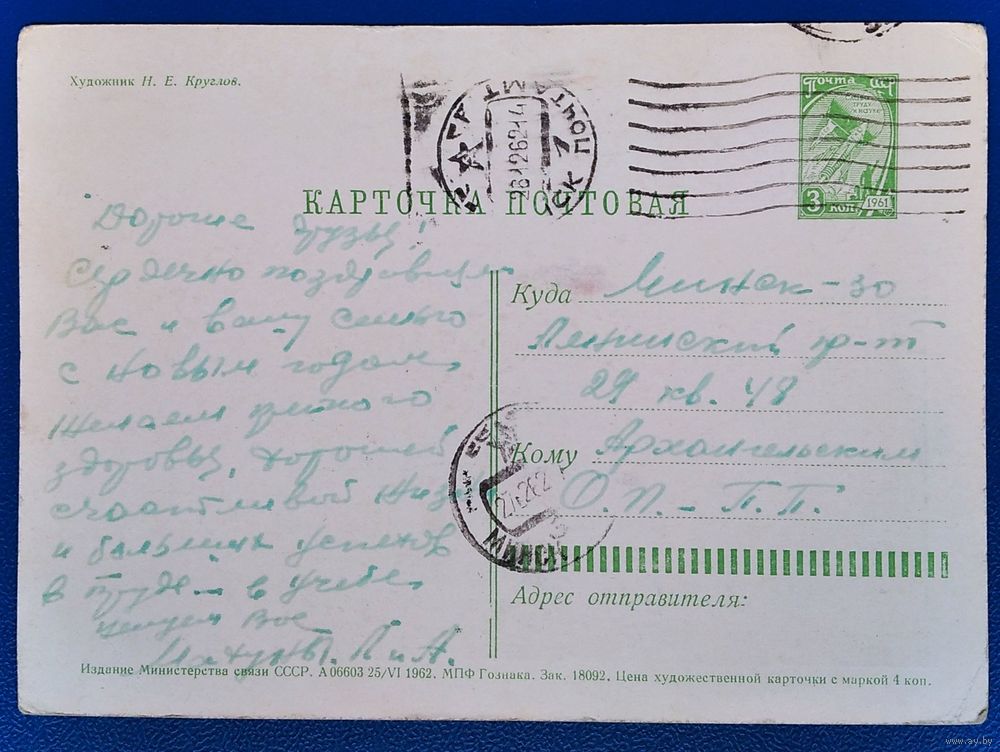 Художник Н. Е. Круглов.
Почта
ТРУДУ
И НАУКЕ
3 коп.
1961
КАРТОЧКА ПОЧТОВАЯ
Дорогие друзья!
Сердечно поздравляем
Вас и вашу семью
с новым годом,
Желаем крепкого
здоровья, хорошей
счастливой жизни
и больших успехов
в труде и в учебе.
целуем Вас
Л. и А.
Куда Минск-30
Ленинский р-т
29 кв. 48
Кому Архангельским
О.П. - П.П.
Адрес отправителя:
Издание Министерства связи СССР. А 06603 25/VI 1962. МПФ Гознака. Зак. 18092. Цена художественной карточки с маркой 4 коп.
www.ay.by